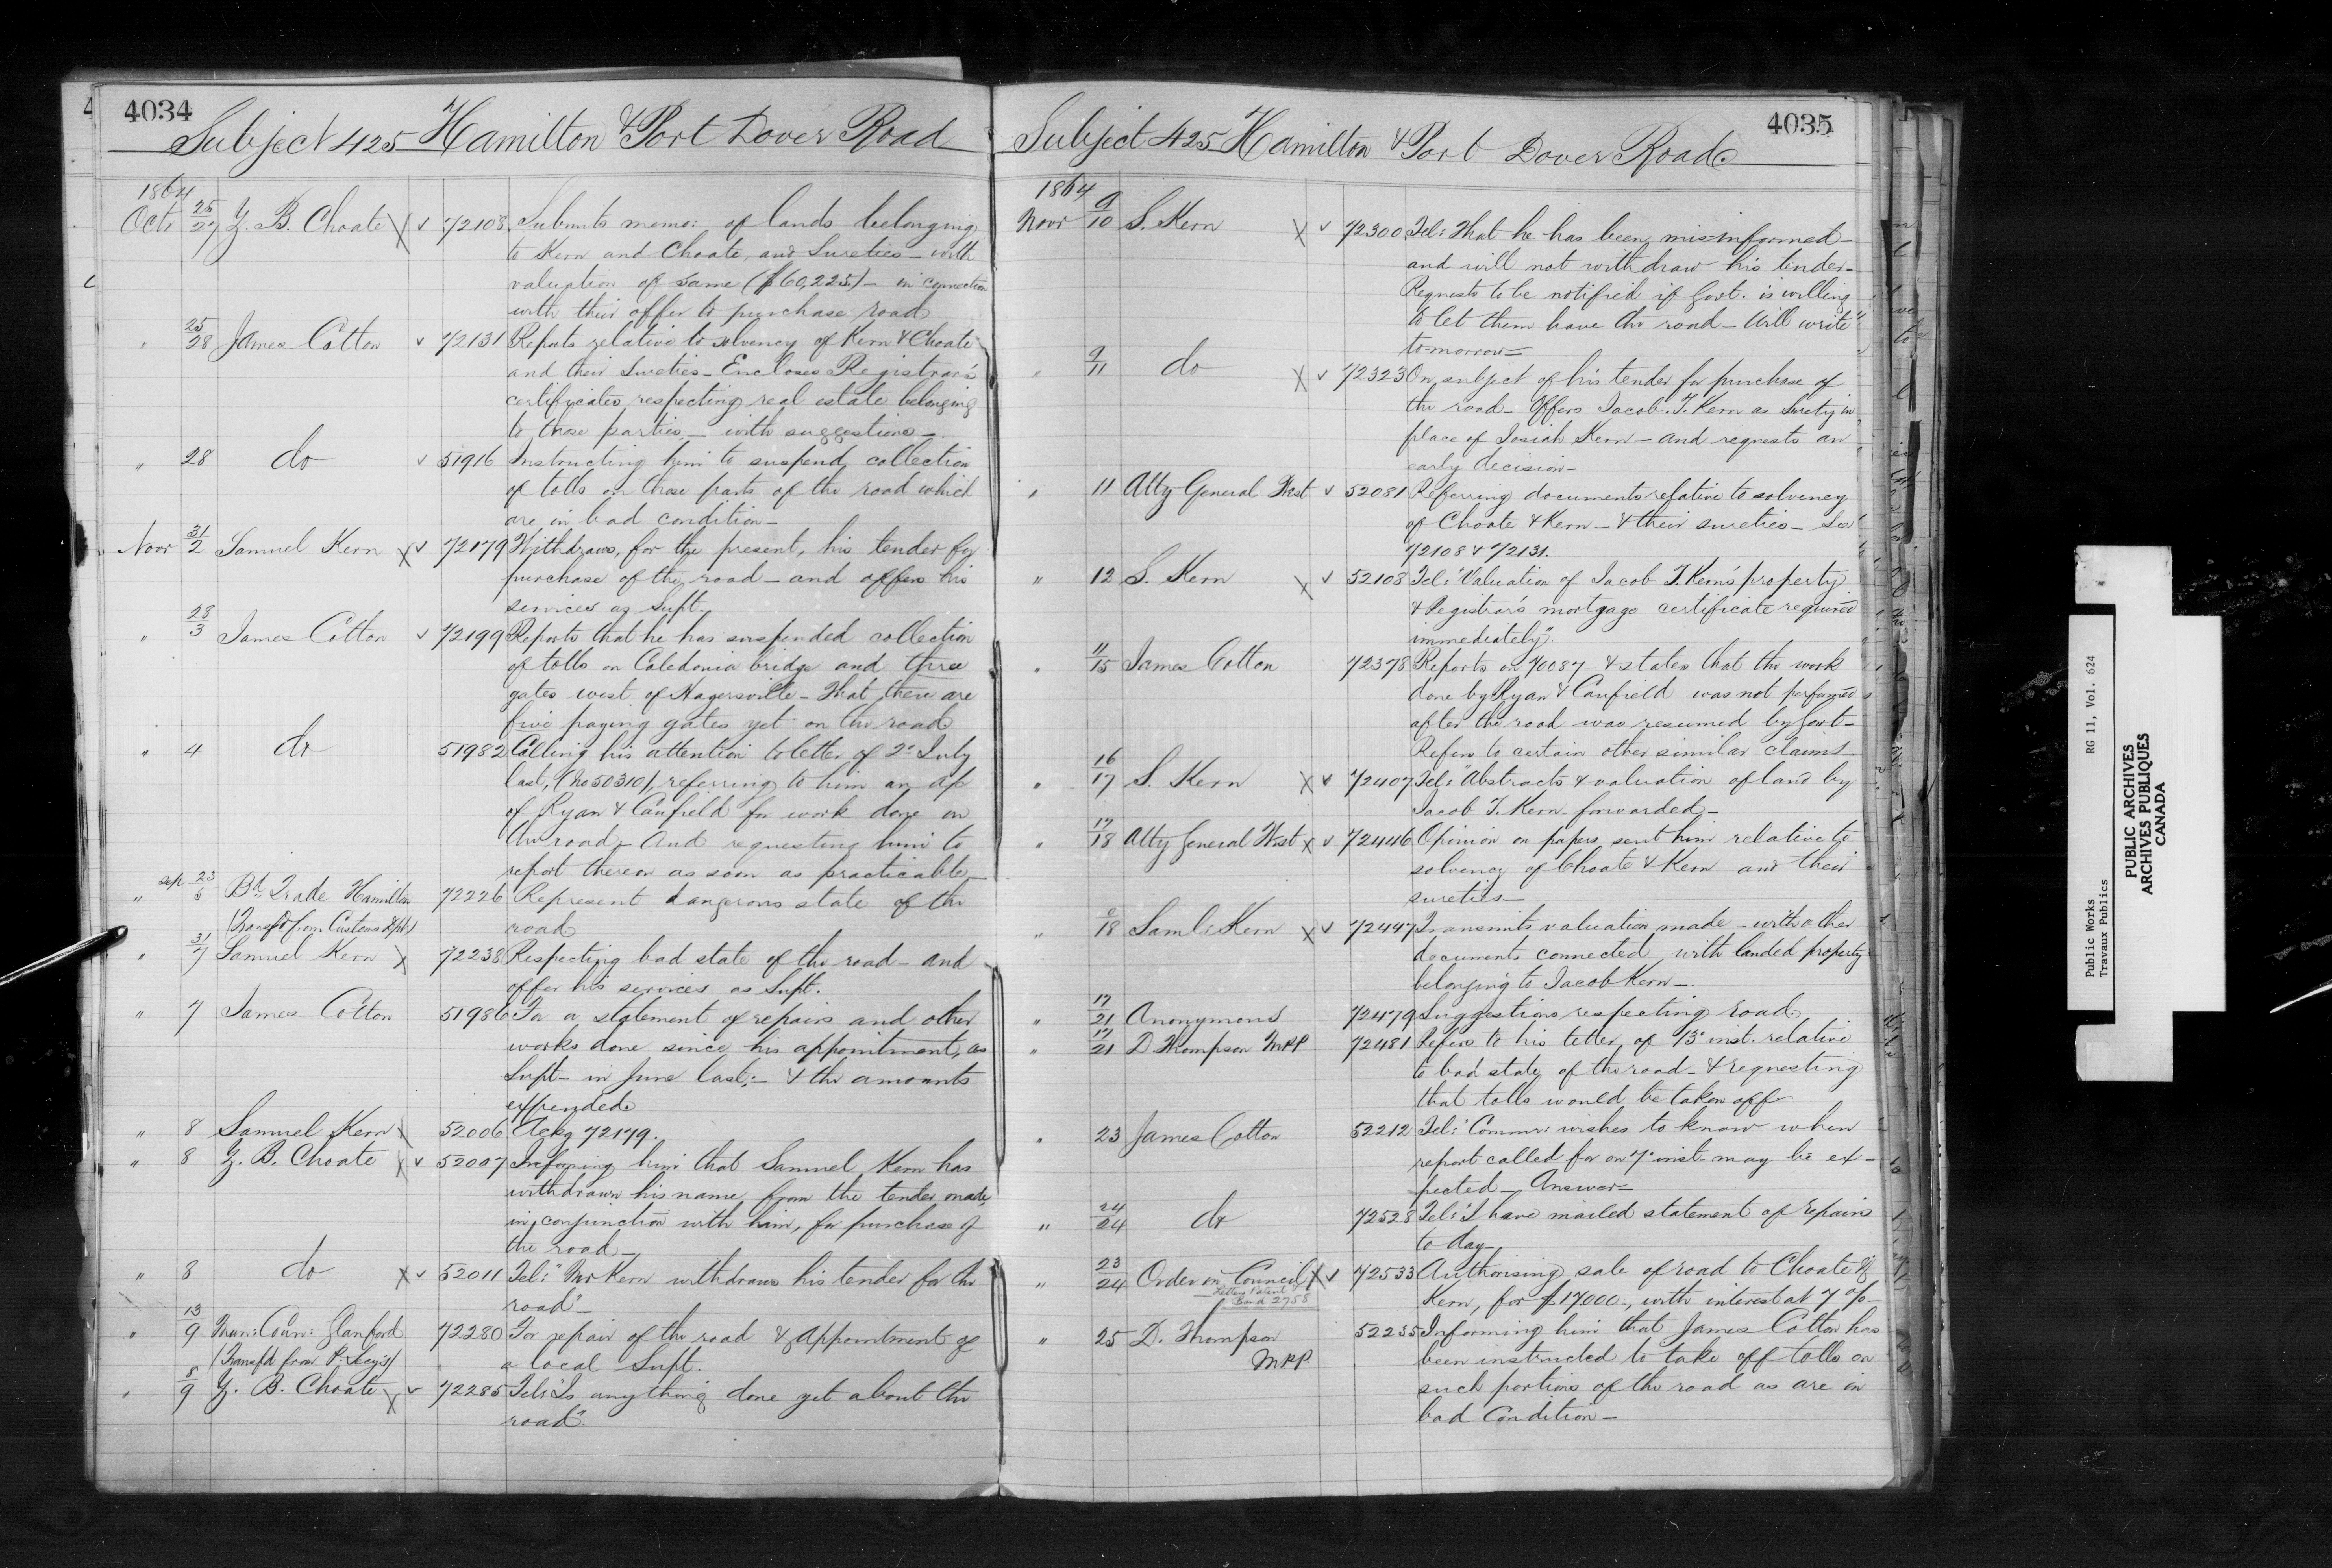 4034
Subject 425 Hamilton & Port Dover Road
1864
Oct 25/27 Z. B. Choate X v 72108 Submits memo: of lands belonging
to Kern and Choate, and Sureties - with
valuation of same ($60,225) - in connection
with their offer to purchase road
" 25/28 James Cotton v 72131 Reports relative to solvency of Kern & Choate
and their Sureties - Encloses Registrar's
certificates respecting real estate belonging
to those parties - with suggestions -
" 28 do v 51916 Instructing him to suspend collection
of tolls on those parts of the road which
are in bad condition -
Novr 31/2 Samuel Kern X v 72179 Withdraws, for the present, his tender for
purchase of the road - and offers his
services as Supt.
" 28/3 James Cotton v 72199 Reports that he has suspended collection
of tolls on Caledonia bridge and three
gates west of Hagersville - That there are
five paying gates yet on the road
" 4 do 51982 Calling his attention to letter of 2d July
last, (No 50310), referring to him an a/c
of Ryan & Canfield for work done on
the road - And requesting him to
report thereon as soon as practicable -
" Sep 23/5 Bd Trade Hamilton 72226 Represent dangerous state of the
(Transfd from Customs Dept) road
" 31/7 Samuel Kern X 72238 Respecting bad state of the road - and
offer his services as Supt.
" 7 James Cotton 51986 For a statement of repairs and other
works done since his appointment, as
Supt - in June last, - & the amounts
expended
" 8 Samuel Kern X 52006 Ackg 72179.
" 8 Z. B. Choate X v 52007 Informing him that Samuel Kern has
withdrawn his name from the tender made
in conjunction with him, for purchase of
the road -
" 8 do X v 52011 Tel: "Mr Kern withdraws his tender for the
road" -
" 13/9 Mun: Coun: Glanford 72280 For repair of the road & appointment of
(Transfd from P. Secy's) a local Supt.
" 8/9 Z. B. Choate X v 72285 Tel: "Is anything done yet about the
road".
4035
Subject 425 Hamilton & Port Dover Road
1864
Novr 9/10 S. Kern X v 72300 Tel: That he has been misinformed -
and will not withdraw his tender -
Requests to be notified if Govt. is willing
to let them have the road - Will write
to-morrow -
" 9/11 do X v 72323 On subject of his tender for purchase of
the road - Offers Jacob. T. Kern as Surety in
place of Josiah Kern - and requests an
early decision -
" 11 Atty General West v 52081 Referring documents relative to solvency
of Choate & Kern - & their sureties - See
72108 & 72131.
" 12 S. Kern X v 52103 Tel: "Valuation of Jacob T. Kern's property
& Registrar's mortgage certificate required
immediately".
" 11/15 James Cotton 72378 Reports on 70087 - & states that the work
done by Ryan & Canfield was not performed
after the road was resumed by Govt -
Refers to certain other similar claims -
" 16/17 S. Kern X v 72407 Tel: "Abstracts & valuation of land by
Jacob T. Kern forwarded -
" 17/18 Atty General West X v 72446 Opinion on papers sent him relative to
solvency of Choate & Kern and their
sureties -
" 18 Saml Kern X v 72447 Transmits valuation made - with other
documents connected with landed property
belonging to Jacob Kern -
" 17/21 Anonymous 72479 Suggestions respecting road
" 17/21 D. Thompson MPP 72481 Refers to his letter of 13 inst. relative
to bad state of the road - & requesting
that tolls would be taken off -
" 23 James Cotton 52212 Tel: "Commr: wishes to know when
report called for on 7 inst. may be ex-
pected - Answer -
" 24/24 do 72528 Tel: "I have mailed statement of repairs
to day -
" 23/24 Order in Council X v 72533 Authorising sale of road to Choate &
Letters Patent
Bond 2758
Kern, for $17,000 -, with interest at 7 % -
" 25 D. Thompson 52235 Informing him that James Cotton has
MPP. been instructed to take off tolls on
such portions of the road as are in
bad Condition -
Public Works RG 11, Vol. 624
Travaux Publics
PUBLIC ARCHIVES
ARCHIVES PUBLIQUES
CANADA